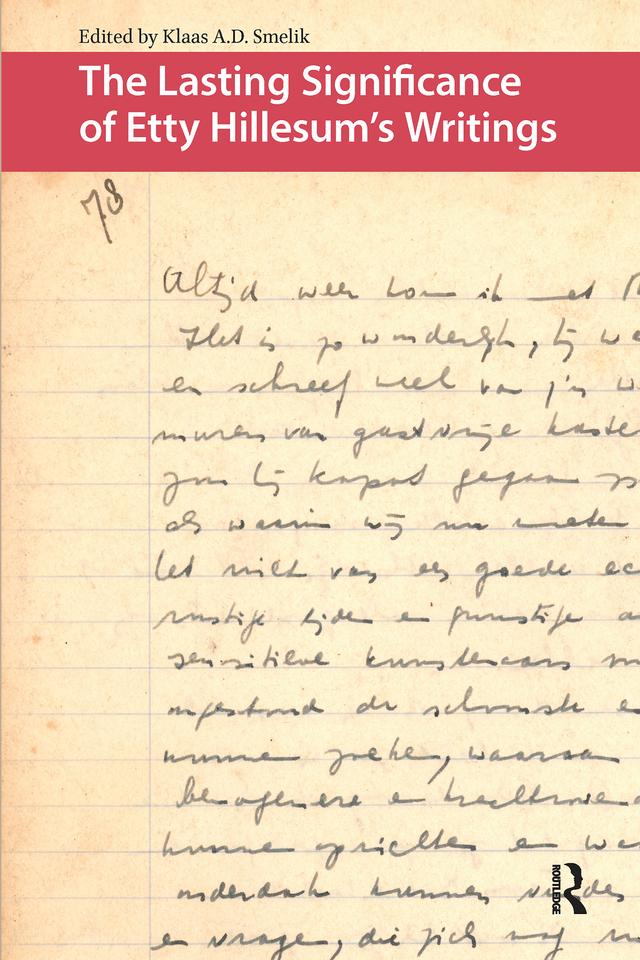 Edited by Klaas A.D. Smelik
The Lasting Significance
of Etty Hillesum's Writings
78
Altijd weer kom ik met
Het is zo wonderlijk, hij
en schreef veel van z'n
muren van gastvrije
zou hij kapot gegaan
als waarin wij nu moeten
Het niet van een goede
rustige tijden en gunstige
sensitieve kunstenaars
ongestoord de schoonste
kunnen zoeken, waaraan
bewogener en
kunnen oprichten en
onderdak kunnen vinden
en vragen, die zich nog
ROUTLEDGE